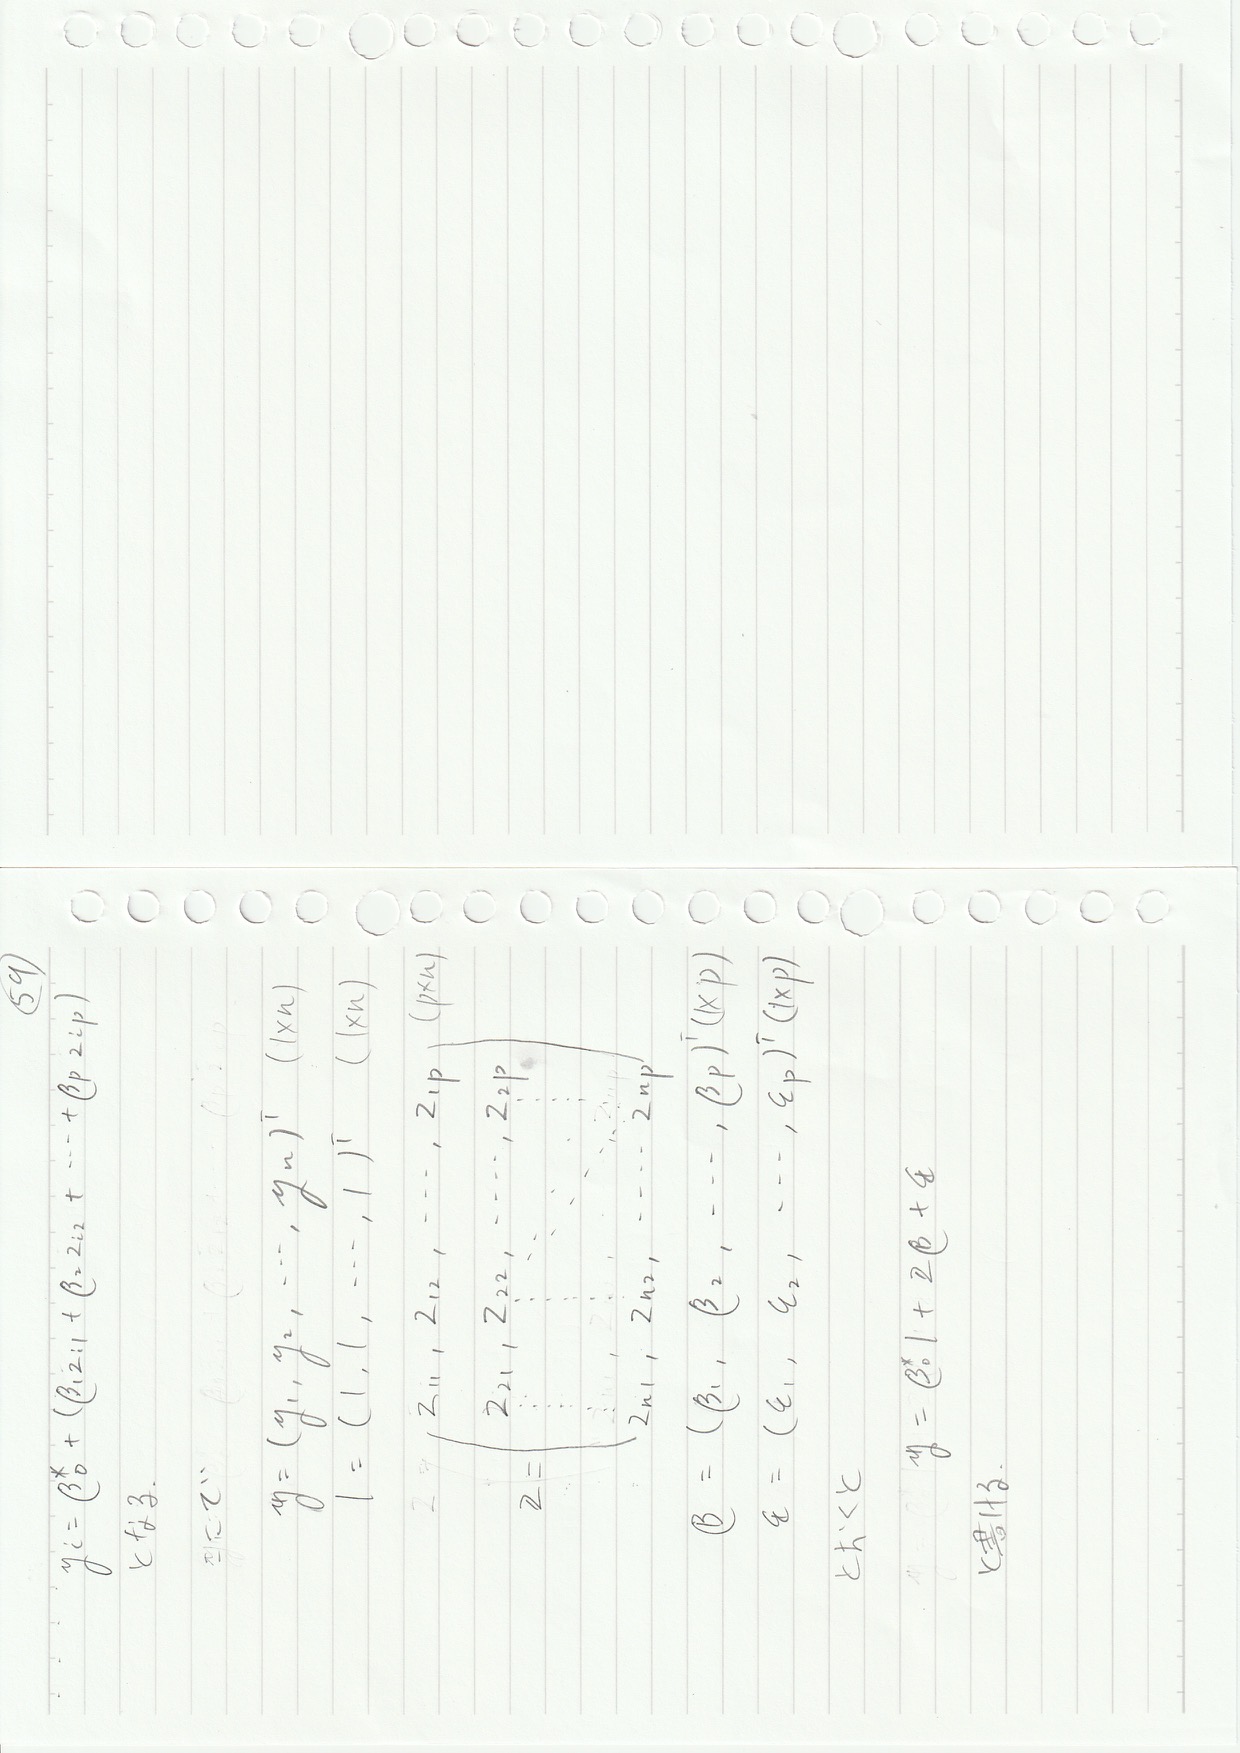 59
yi = β0* + (β1zi1 + β2zi2 + ---- + βpzip)
となる.
y = (y1, y2, ---, yn)^T (1×n)
1 = (1, 1, ---, 1)^T (1×n)
z11, z12, ----, z1p (p×n)
z21, z22, -----, z2p
Z =
zn1, zn2, ----- znp
β = (β1, β2, ----, βp)^T (1×p)
ε = (ε1, ε2, ----, εp)^T (1×p)
とおくと
y = β0*1 + Zβ + ε
と書ける.